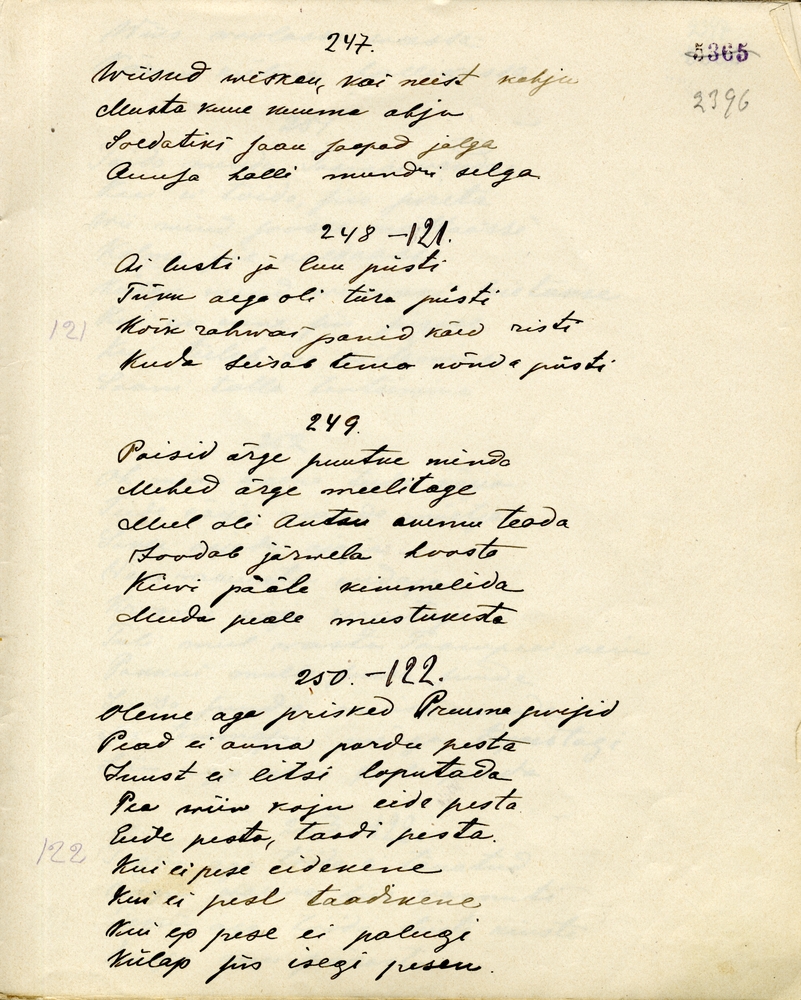 247.
5365
2396
Wiisud wiskan, kai neist kahju
Musta kuue kuuma ahju
Soldatiks saan saapad jalga
Annsa halli mundri selga
248 – 121.
Ai lusti ja luu püsti
Türu aega oli türa püsti
121
Kõik rahwas panid käed risti
Kuda seisab tema nõnda püsti
249.
Poisid ärge puutue minda
Mehed ärge meelitage
Mul oli Antsu ammu teada
Soodab järwela hoosta
Kiwi pääle kimmelida
Muda peale mustukesta
250. – 122.
Oleme aga prisked Pruuna poisid
Pead ei anna pardu pesta
Juust ei litsi loputada
Pea wiin koju eide pesta
Eide pesta, taadi pesta.
122
Kui ei pese eidekene
Kui ei pese taadikene
Kui ep pese ei palugi
Külap siis isegi pesen.